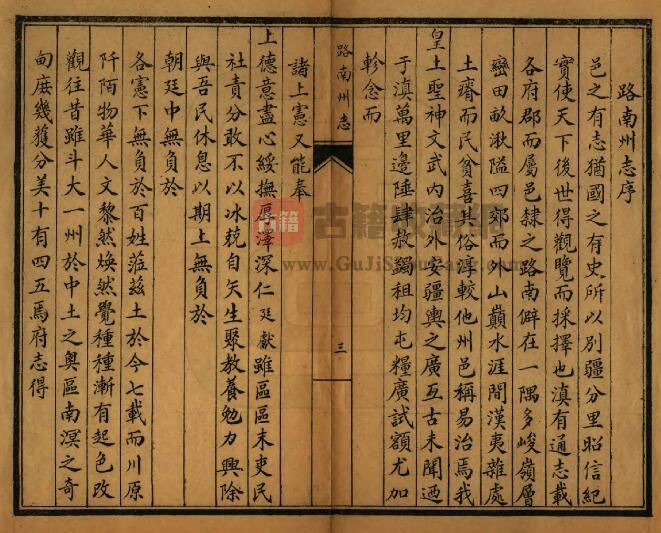 路南州志序
邑之有志猶國之有史所以別疆分里昭信紀
實使天下後世得觀覽而採擇也滇有通志載
各府郡而屬邑隸之路南僻在一隅多峻嶺層
巒田畝湫隘四郊而外山巔水涯間漢夷雜處
土瘠而民貧喜其俗淳較他州邑稱易治焉我
皇上聖神文武內治外安疆輿之廣亙古未聞迺
于滇萬里邊陲肆赦蠲租均屯糧廣試額尤加
軫念而
路南州志
三
諸上憲又能奉
上德意盡心綏撫厚澤深仁廷獻雖區區末吏民
社責分敢不以冰兢自矢生聚教養勉力興除
與吾民休息以期上無負於
朝廷中無負於
各憲下無負於百姓蒞茲土於今七載而川原
阡陌物華人文黎然煥然覺種種漸有起色攷
觀往昔雖斗大一州於中土之奧區南溟之奇
甸庶幾獲分美十有四五焉府志得
古籍